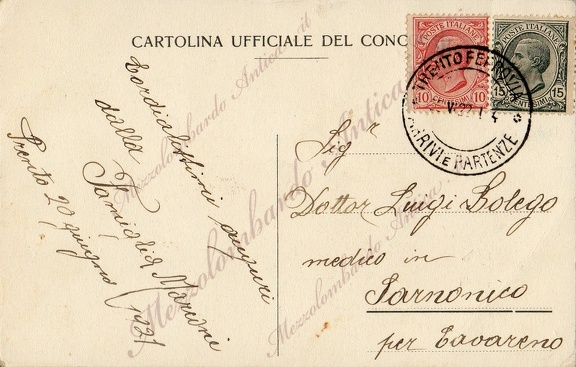 CARTOLINA UFFICIALE DEL CONC
POSTE ITALIANE
10 CENTESIMI 10
POSTE ITALIANE
15 CENTESIMI 15
TRENTO FERROVIA
ARRIVI E PARTENZE
Cordialissimi auguri
dalla
Famiglia
Trento 20 giugno 1921
Sigr
Dottor Luigi Bolego
medico in
Sarnonico
per Cavareno
Mezzolombardo Antica.it
Mezzolombardo Antica
Mezzolombardo Antica